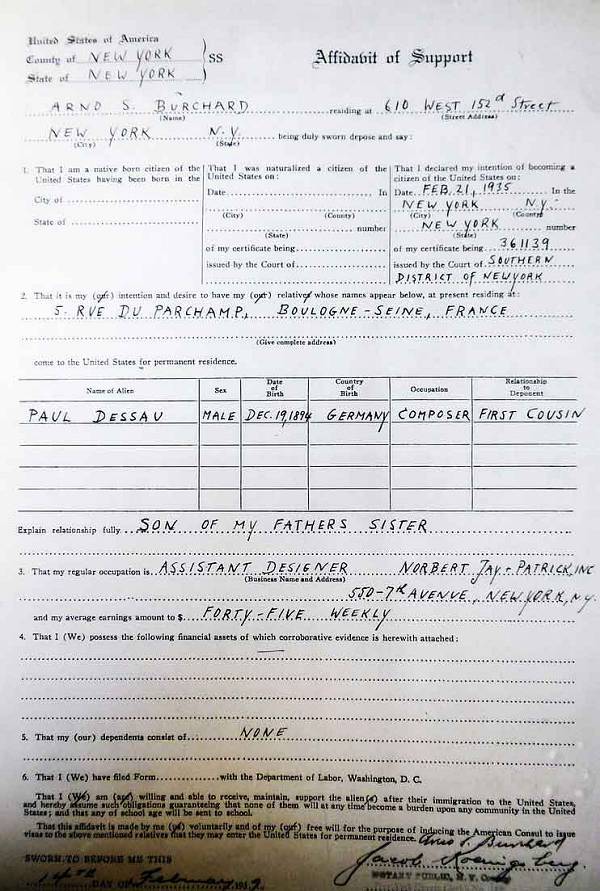 United States of America
County of NEW YORK
State of NEW YORK
SS
Affidavit of Support
ARNO S. BURCHARD residing at 610 WEST 152d Street
(Name) (Street Address)
NEW YORK N.Y. being duly sworn depose and say:
(City) (State)
1. That I am a native born citizen of the
United States having been born in the
City of
State of
That I was naturalized a citizen of the
United States on:
Date In
(City) (County)
number
(State)
of my certificate being
issued by the Court of
That I declared my intention of becoming a
citizen of the United States on:
Date FEB. 21, 1935 In the
NEW YORK N.Y.
(City) (County)
NEW YORK number
(State)
of my certificate being 361139
issued by the Court of SOUTHERN
DISTRICT OF NEW YORK
2. That it is my (our) intention and desire to have my (our) relatives whose names appear below, at present residing at:
5. RUE DU PARCHAMP, BOULOGNE-SEINE, FRANCE
(Give complete address)
come to the United States for permanent residence.
Name of Alien Sex Date of Birth Country of Birth Occupation Relationship to Deponent
PAUL DESSAU MALE DEC. 19, 1894 GERMANY COMPOSER FIRST COUSIN
Explain relationship fully SON OF MY FATHERS SISTER
3. That my regular occupation is ASSISTANT DESIGNER NORBERT JAY-PATRICK, INC
(Business Name and Address)
550-7th AVENUE, NEW YORK, N.Y.
and my average earnings amount to $ FORTY-FIVE WEEKLY
4. That I (We) possess the following financial assets of which corroborative evidence is herewith attached:
5. That my (our) dependents consist of NONE
6. That I (We) have filed Form with the Department of Labor, Washington, D. C.
That I (We) am (are) willing and able to receive, maintain, support the alien(s) after their immigration to the United States,
and hereby assume such obligations guaranteeing that none of them will at any time become a burden upon any community in the United
States; and that any of school age will be sent to school.
That this affidavit is made by me (us) voluntarily and of my (our) free will for the purpose of inducing the American Consul to issue
visas to the above mentioned relatives that they may enter the United States for permanent residence. Arno S. Burchard
SWORN TO BEFORE ME THIS Jacob Koenigsberg
14th DAY OF February 193 NOTARY PUBLIC, N.Y. Co.